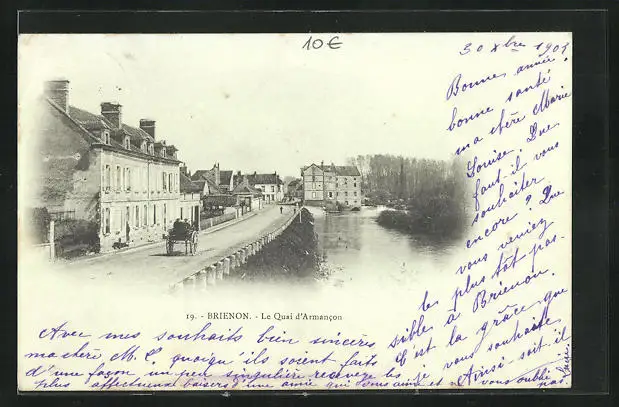 10€
30 Xbre 1901
Bonne année
bonne santé
ma chère Marie
Louise. Que
faut-il vous
souhaiter
encore ? Que
vous veniez
le plus tôt pos-
sible à Brienon.
C'est la grâce que
je vous souhaite
Ainsi soit-il
19. - BRIENON. - Le Quai d'Armançon
Avec mes souhaits bien sincères
ma chère M. L. quoiqu'ils soient faits
d'une façon un peu singulière recevez les
plus affectueux baisers d'une amie qui vous aime et ne vous oublie pas